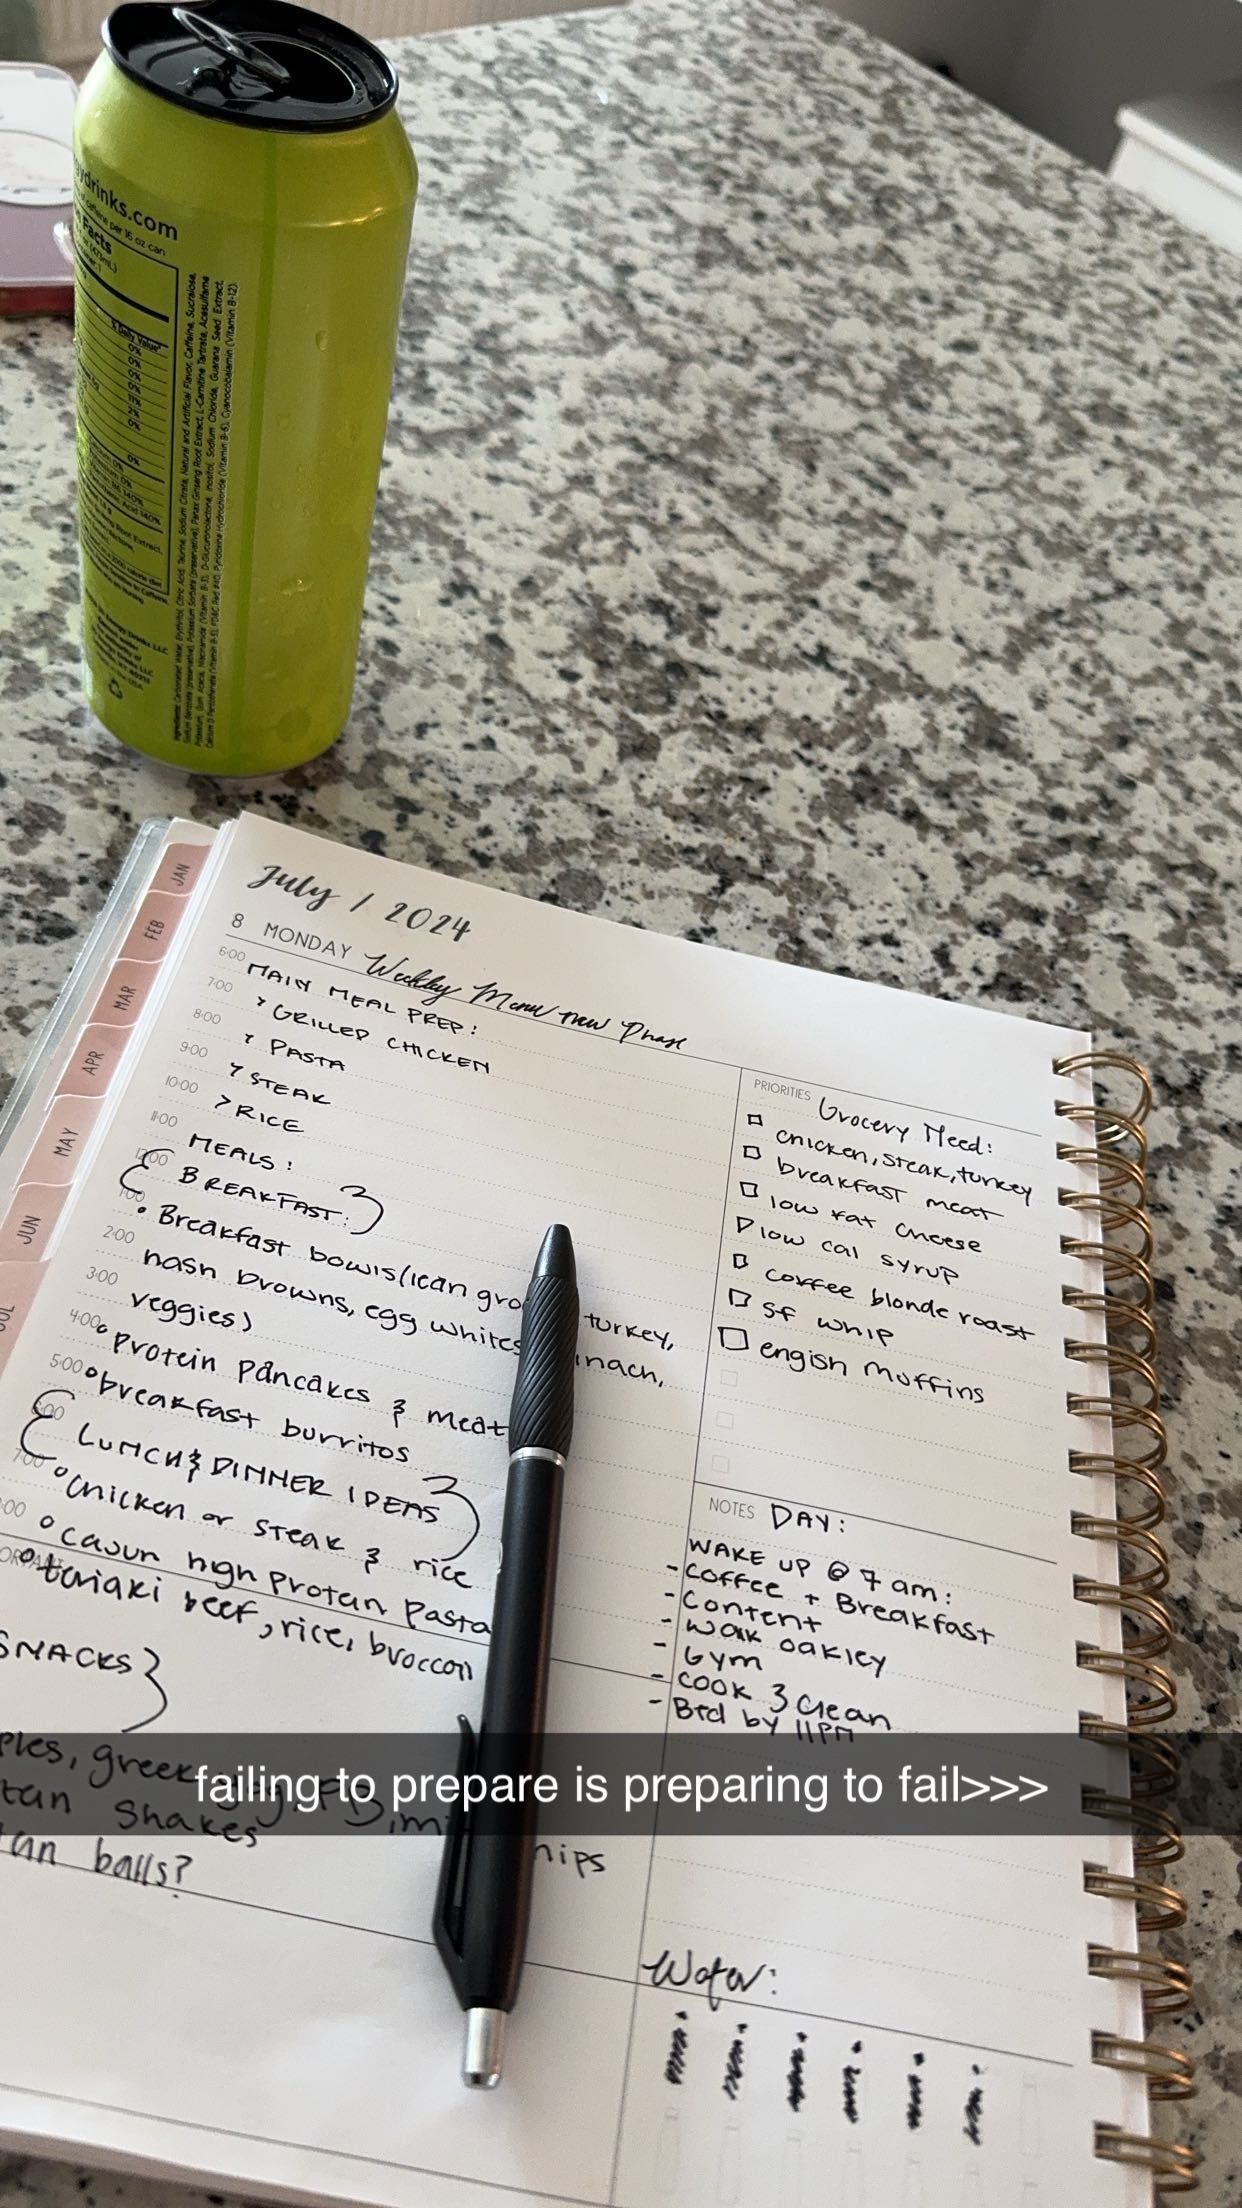 drinks.com
caffeine per 16 oz can
Facts
% Daily Value*
0%
0%
0%
0%
11%
2%
0%
0%
Ingredients: Carbonated Water, Erythritol, Citric Acid, Taurine, Sodium Citrate, Natural and Artificial Flavor, Caffeine, Sucralose,
JAN
FEB
MAR
APR
MAY
JUN
July / 2024
8 MONDAY Weekly Menu new Phase
6:00 MAIN MEAL PREP:
7:00 > GRILLED CHICKEN
8:00 > PASTA
9:00 > STEAK
10:00 > RICE
11:00 MEALS:
12:00 { BREAKFAST: }
1:00 • Breakfast bowls (lean turkey,
2:00 hash browns, egg whites
3:00 veggies)
4:00 • protein pancakes & meat
5:00 • breakfast burritos
6:00 { LUNCH & DINNER IDEAS }
7:00 • Chicken or steak & rice
:00 • cajun high protein pasta
• teriaki beef, rice, broccoli
SNACKS }
greek
shakes
balls?
PRIORITIES Grocery Need:
chicken, steak, turkey
breakfast meat
low fat cheese
low cal syrup
coffee blonde roast
sf whip
engish muffins
NOTES DAY:
WAKE UP @ 7 am:
- Coffee + Breakfast
- Content
- walk oakley
- Gym
- COOK & Clean
- Bed by 11PM
failing to prepare is preparing to fail>>>
Water: